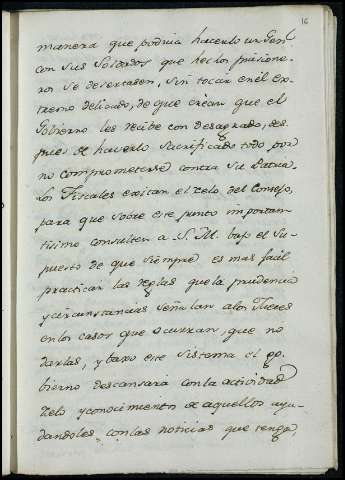 16
manera que podria hacerlo un Genl
con sus Soldados que hechos prisione-
ros se desertasen, sin tocar en el ex-
tremo delicado, de que crean que el
Gobierno les recibe con desagrado, des-
pues de haverlo sacrificado todo por
no comprometerse contra su Patria.
Los Fiscales exitan el zelo del Consejo,
para que sobre este punto importan-
tisimo consulten a S. M. bajo el su-
puesto de que siempre es mas facil
practicar las reglas que la prudencia
y circunstancias señalan a los Jueces
en los casos que ocurran, que no
darlas, y baxo este sistema el go-
bierno descansará con la actividad
zelo y conocimiento de aquellos ayu-
dandoles con las noticias que tenga,